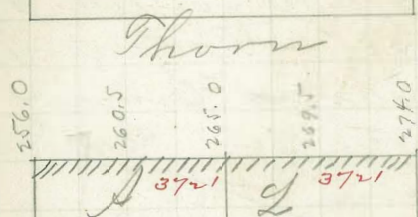 Thorn
256.0 260.5 265.0 269.5 274.0
3721 3721